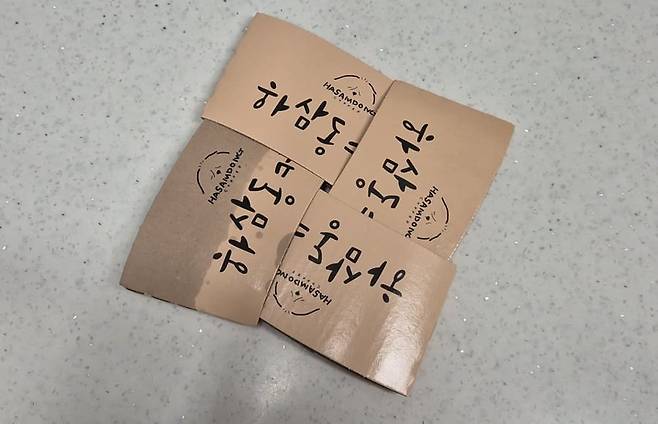 HASAMDONG
COFFEE
하삼동
하삼동
HASAMDONG
COFFEE
HASAMDONG
COFFEE
하삼동
하삼동
HASAMDONG
COFFEE